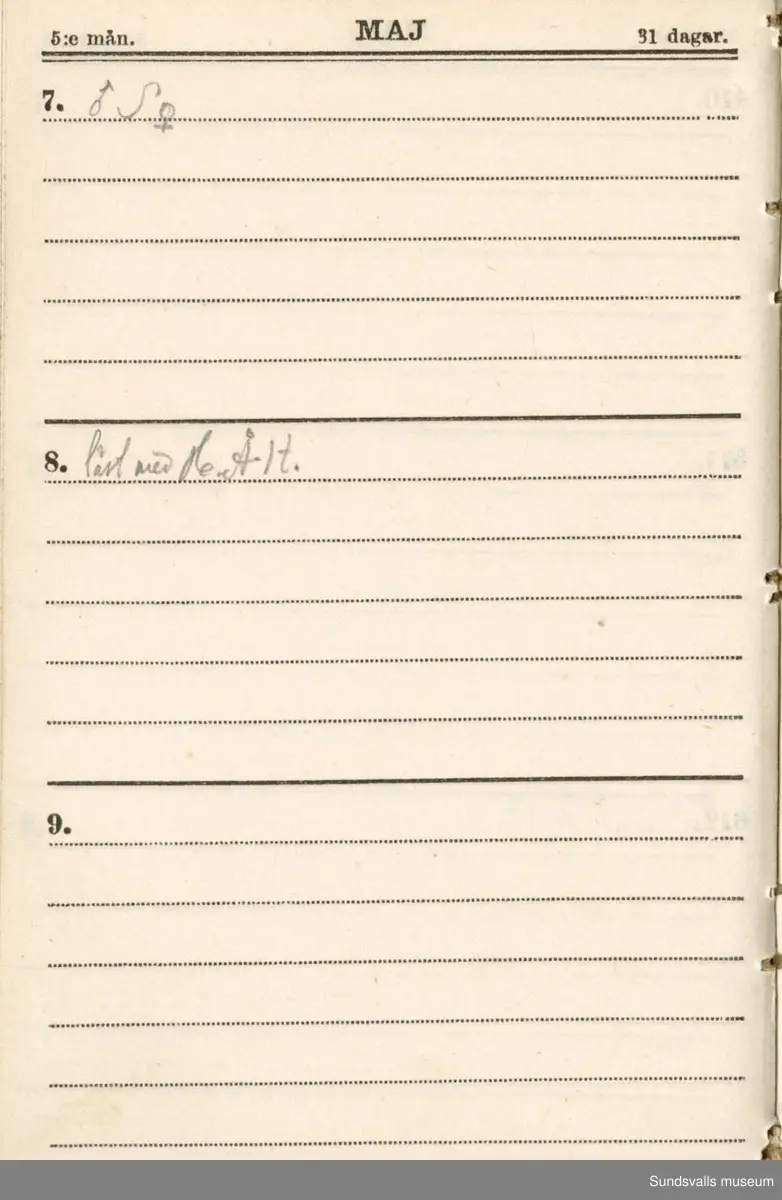 5:e mån. MAJ 31 dagar.
7. ♂ S ♀
8. läst med H. Å H.
9.
Sundsvalls museum